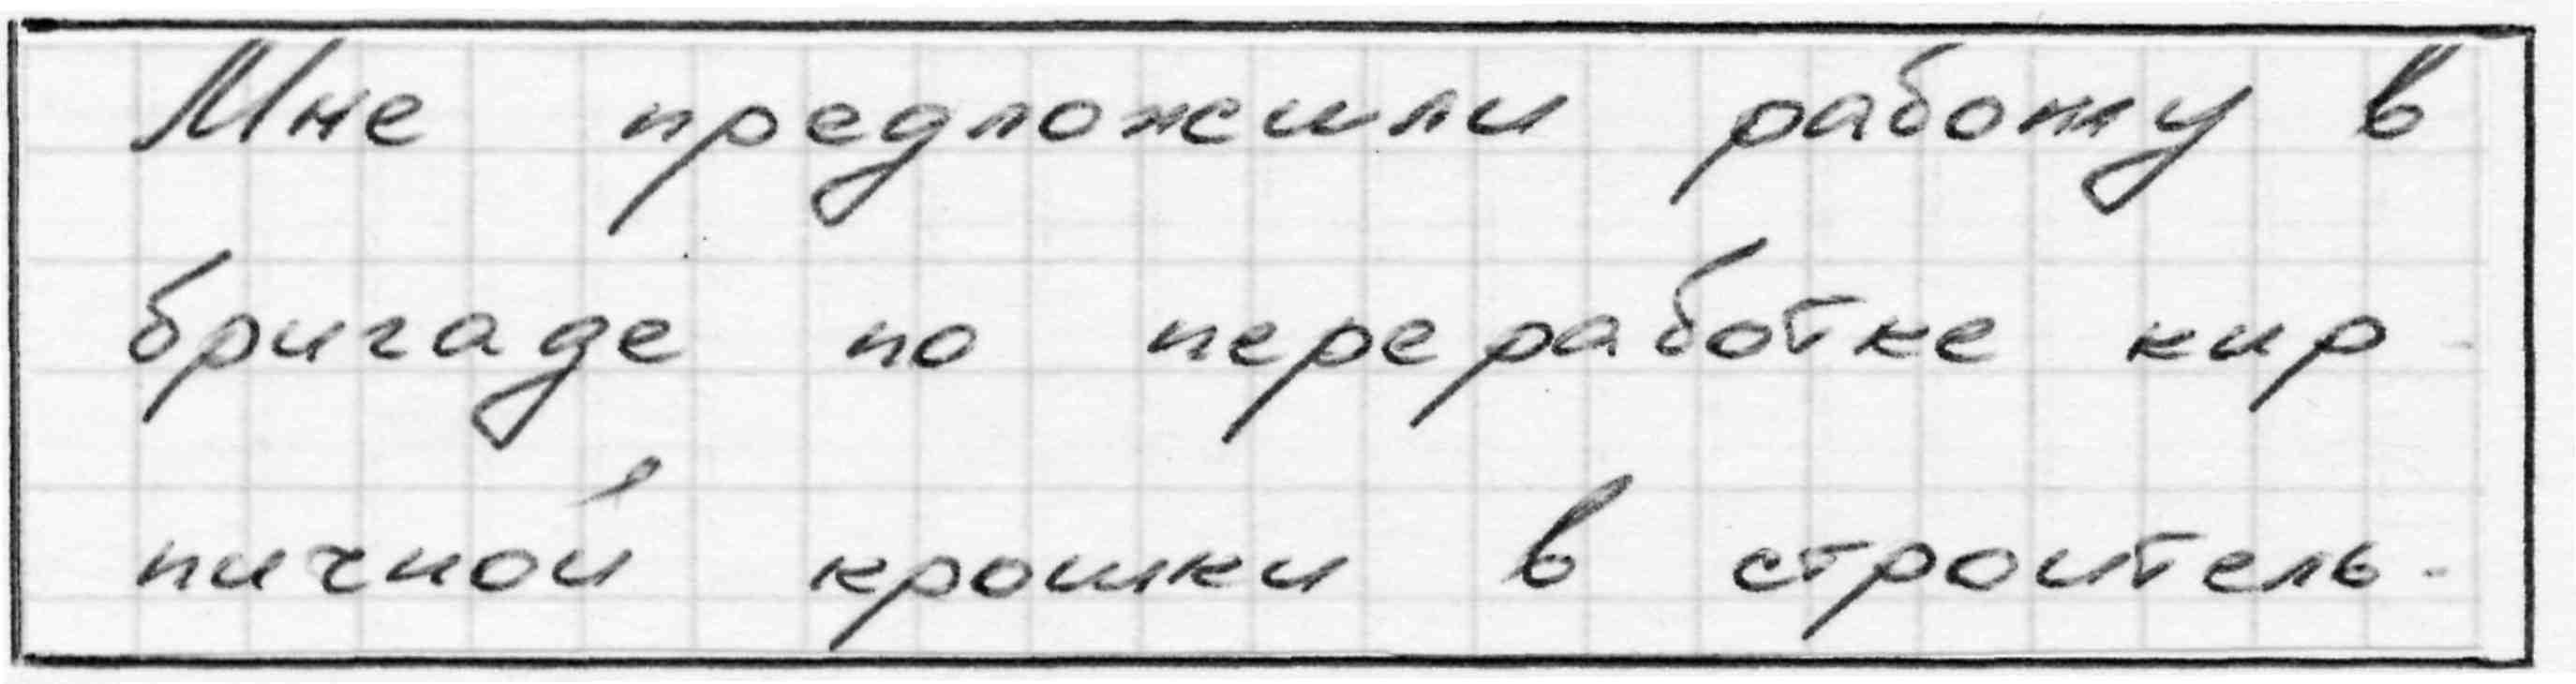 Мне предложили работу в
бригаде по переработке кир-
пичной крошки в строитель-